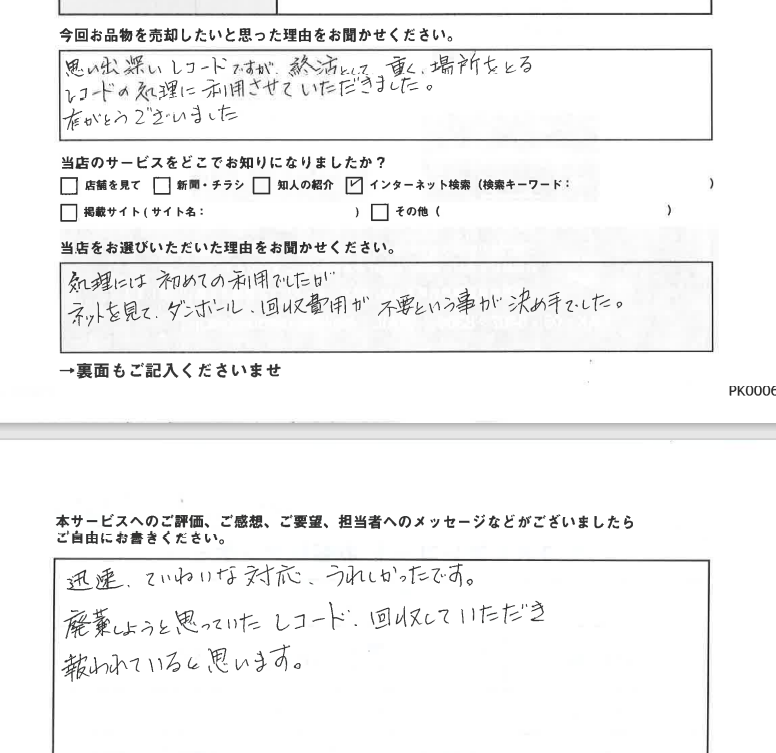 今回お品物を売却したいと思った理由をお聞かせください。
思い出深いレコードですが、終活として、重く、場所をとる
レコードの処理に利用させていただきました。
有がとうございました
当店のサービスをどこでお知りになりましたか？
□ 店舗を見て □ 新聞・チラシ □ 知人の紹介 ☑ インターネット検索（検索キーワード： ）
□ 掲載サイト（サイト名： ） □ その他（ ）
当店をお選びいただいた理由をお聞かせください。
処理には初めての利用でしたが
ネットを見て、ダンボール、回収費用が不要という事が決め手でした。
→裏面もご記入くださいませ
PK0006
本サービスへのご評価、ご感想、ご要望、担当者へのメッセージなどがございましたら
ご自由にお書きください。
迅速、ていねいな対応、うれしかったです。
廃棄しようと思っていたレコード、回収していただき
報われていると思います。